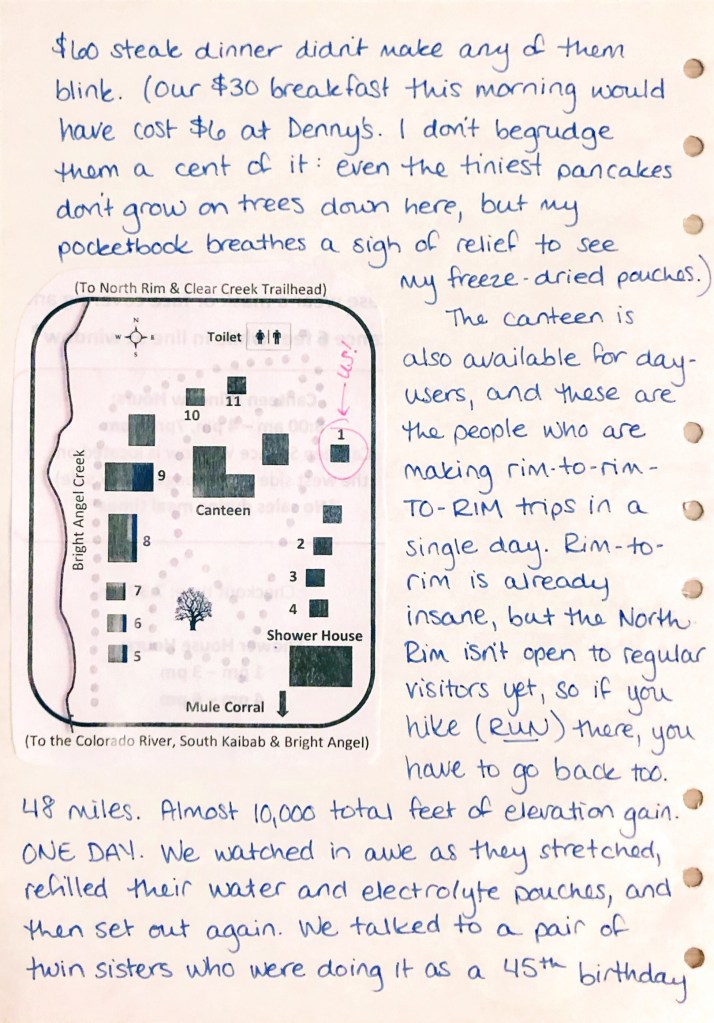 $60 steak dinner didn't make any of them
blink. (Our $30 breakfast this morning would
have cost $6 at Denny's. I don't begrudge
them a cent of it: even the tiniest pancakes
don't grow on trees down here, but my
pocketbook breathes a sigh of relief to see
my freeze-dried pouches.)
The canteen is
also available for day-
users, and these are
the people who are
making rim-to-rim-
TO-RIM trips in a
single day. Rim-to-
rim is already
insane, but the North
Rim isn't open to regular
visitors yet, so if you
hike (RUN) there, you
have to go back too.
(To North Rim & Clear Creek Trailhead)
N
W
E
S
Toilet
← US!
11
10
1
9
Canteen
Bright Angel Creek
8
2
3
7
4
6
5
Shower House
Mule Corral
(To the Colorado River, South Kaibab & Bright Angel)
48 miles. Almost 10,000 total feet of elevation gain.
ONE DAY. We watched in awe as they stretched,
refilled their water and electrolyte pouches, and
then set out again. We talked to a pair of
twin sisters who were doing it as a 45th birthday